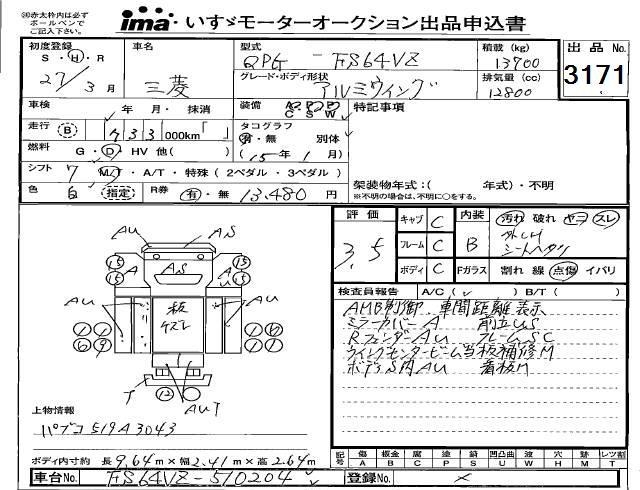 ㊟赤太枠内は必ずボールペンでご記入下さい。
ima いすゞモーターオークション出品申込書
初度登録 S・H・R 27/3月
車名 三菱
型式 QPG - FS64VZ
グレード・ボディ形状 アルミウィング
積載 (kg) 13700
排気量 (cc) 12800
出品 No. 3171
車検 年 月・抹消
装備 AC PS PW
特記事項
走行 (B) 733 000km「 」
タコグラフ 有・無 別体 (15年1月)
燃料 G・D・HV 他( )
シフト 7 M/T・A/T・特殊 (2ペダル・3ペダル)
架装物年式:( 年式)・不明
※不明の場合は、不明に○をする。
色 白 指定 R券 有・無 13,480 円
評価 3.5
キャブ C
フレーム C
ボディ C
内装 B
Fガラス
汚れ 破れ ヤコ スレ
シートヘタリ
割れ 線 点傷 イバリ
検査員報告 A/C( レ ) B/T( )
AMB制御、車間距離表示
ミラーカバーA 前立US
RフェンダーAU フレームSC
ウイングセンタービーム当板補修M
ボデS内AU 看板M
AU AS
15 A AS A U 15
15 15
AU 板ケズレ AU
11 11 11 16
16 9 11 11
T 12
AUT
上物情報
パブコ 519A3043
ボディ内寸約 長9.64m×幅2.41m×高2.64m
記号 傷A 板金B 腐C 塗P 錆S 凹凸曲U 破W 穴H 跡M レンズ割T
車台No. FS64VZ-510204
登録No. ×